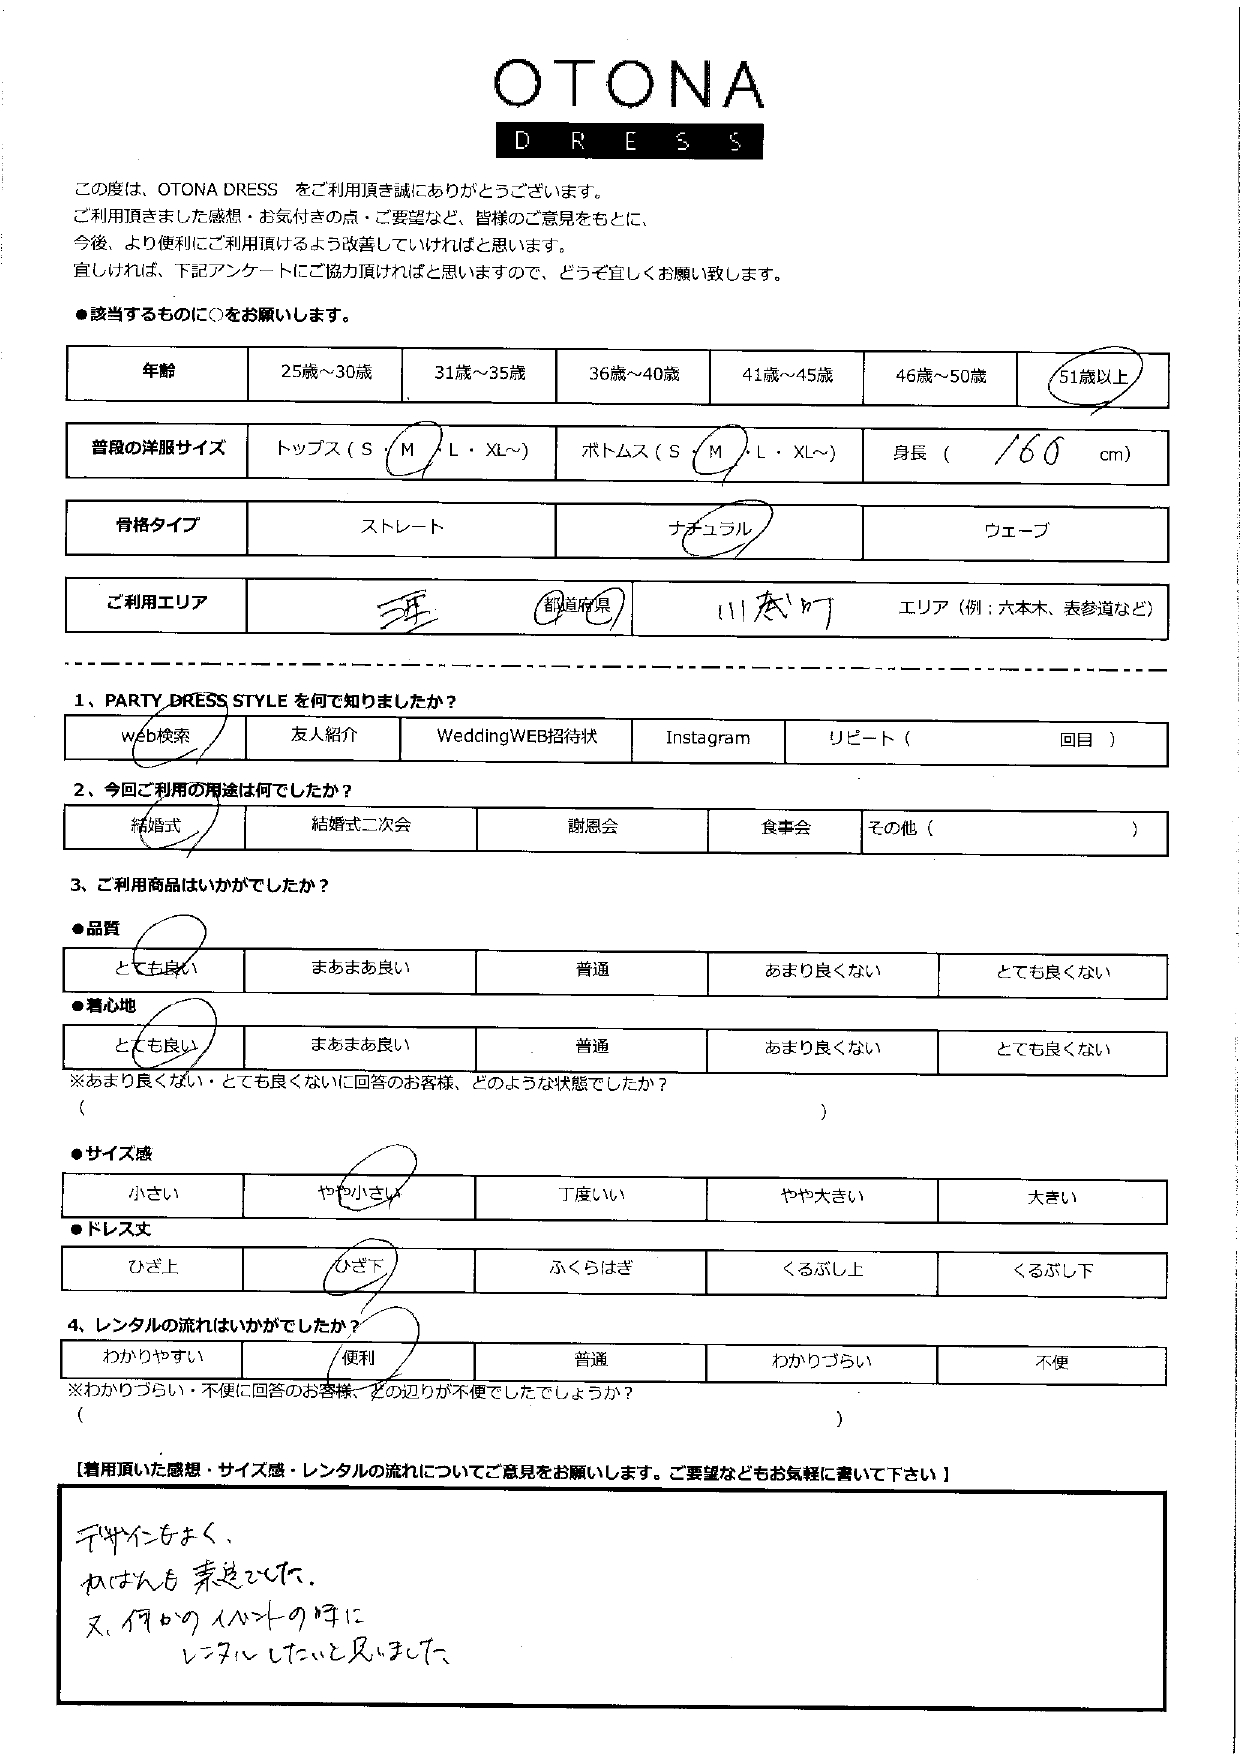 OTONA
DRESS
この度は、OTONA DRESS　をご利用頂き誠にありがとうございます。
ご利用頂きました感想・お気付きの点・ご要望など、皆様のご意見をもとに、
今後、より便利にご利用頂けるよう改善していければと思います。
宜しければ、下記アンケートにご協力頂ければと思いますので、どうぞ宜しくお願い致します。
●該当するものに○をお願いします。
年齢 25歳～30歳 31歳～35歳 36歳～40歳 41歳～45歳 46歳～50歳 51歳以上
普段の洋服サイズ トップス（ S ・ M ・ L ・ XL～） ボトムス（ S ・ M ・ L ・ XL～） 身長（ 160 cm）
骨格タイプ ストレート ナチュラル ウェーブ
ご利用エリア 都道府県 エリア（例；六本木、表参道など）
1、PARTY DRESS STYLE を何で知りましたか？
web検索 友人紹介 WeddingWEB招待状 Instagram リピート（ 回目 ）
2、今回ご利用の用途は何でしたか？
結婚式 結婚式二次会 謝恩会 食事会 その他（ ）
3、ご利用商品はいかがでしたか？
●品質
とても良い まあまあ良い 普通 あまり良くない とても良くない
●着心地
とても良い まあまあ良い 普通 あまり良くない とても良くない
※あまり良くない・とても良くないに回答のお客様、どのような状態でしたか？
（ ）
●サイズ感
小さい やや小さい 丁度いい やや大きい 大きい
●ドレス丈
ひざ上 ひざ下 ふくらはぎ くるぶし上 くるぶし下
4、レンタルの流れはいかがでしたか？
わかりやすい 便利 普通 わかりづらい 不便
※わかりづらい・不便に回答のお客様、どの辺りが不便でしたでしょうか？
（ ）
【着用頂いた感想・サイズ感・レンタルの流れについてご意見をお願いします。ご要望などもお気軽に書いて下さい 】
デザインもよく、
かばんも 素適でした.
又、何かの イベントの時に
レンタル したいと思いました